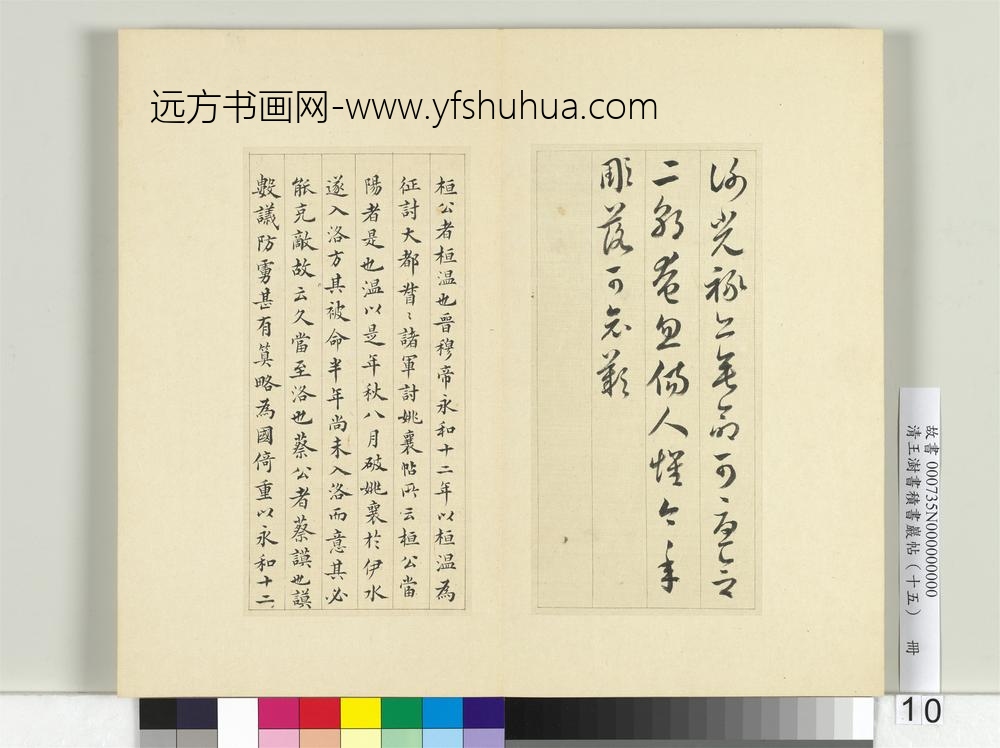 远方书画网-www.yfshuhua.com
謝光祿亡垂命可
二奄忽傷人懷今年
彫落可歎
桓公者桓温也晉穆帝永和十二年以桓温為
征討大都督〻諸軍討姚襄帖所云桓公當
陽者是也温以是年秋八月破姚襄於伊水
遂入洛方其被命半年尚未入洛而意其必
能克敵故云久當至洛也蔡公者蔡謨也謨
數議防虜甚有筭略為國倚重以永和十二
故書 000735N000000000
清王澍書積書巖帖（十五） 冊
10